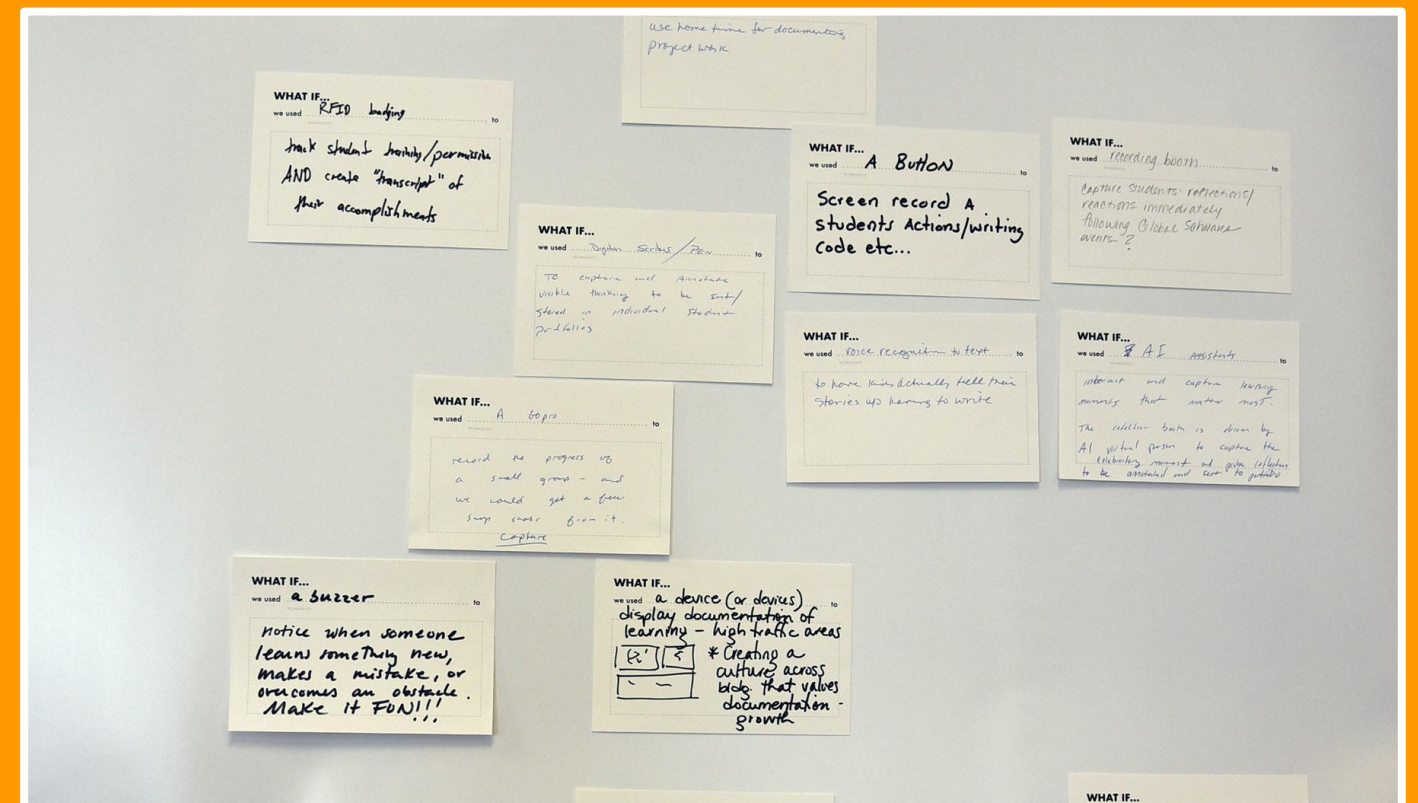 use home time for documenting
project work
WHAT IF...
we used RFID badging to
track student training/permission
AND create "transcript" of
their accomplishments
WHAT IF...
we used A Button to
Screen record A
students Actions/writing
code etc...
WHAT IF...
we used recording booth to
Capture students reflections/
reactions immediately
following Global
events?
WHAT IF...
we used / Pen to
To capture and Annotate
visible thinking to be sent/
stored in individual student
portfolios
WHAT IF...
we used voice recognition to text to
to have kids actually tell their
stories w/o having to write
WHAT IF...
we used AI Assistants to
interact and capture learning
moments that matter most.
The booth is driven by
AI virtual person to capture the
celebratory moment and probe reflection
to be annotated and sent to portfolio
WHAT IF...
we used A Gopro to
record the progress of
a small group - and
we could get a few
snap shots from it.
Capture
WHAT IF...
we used a buzzer to
notice when someone
learns something new,
makes a mistake, or
overcomes an obstacle.
Make it FUN!!!
WHAT IF...
we used a device (or devices) to
display documentation of
learning - high traffic areas
* Creating a
culture across
bldg. that values
documentation -
growth
WHAT IF...